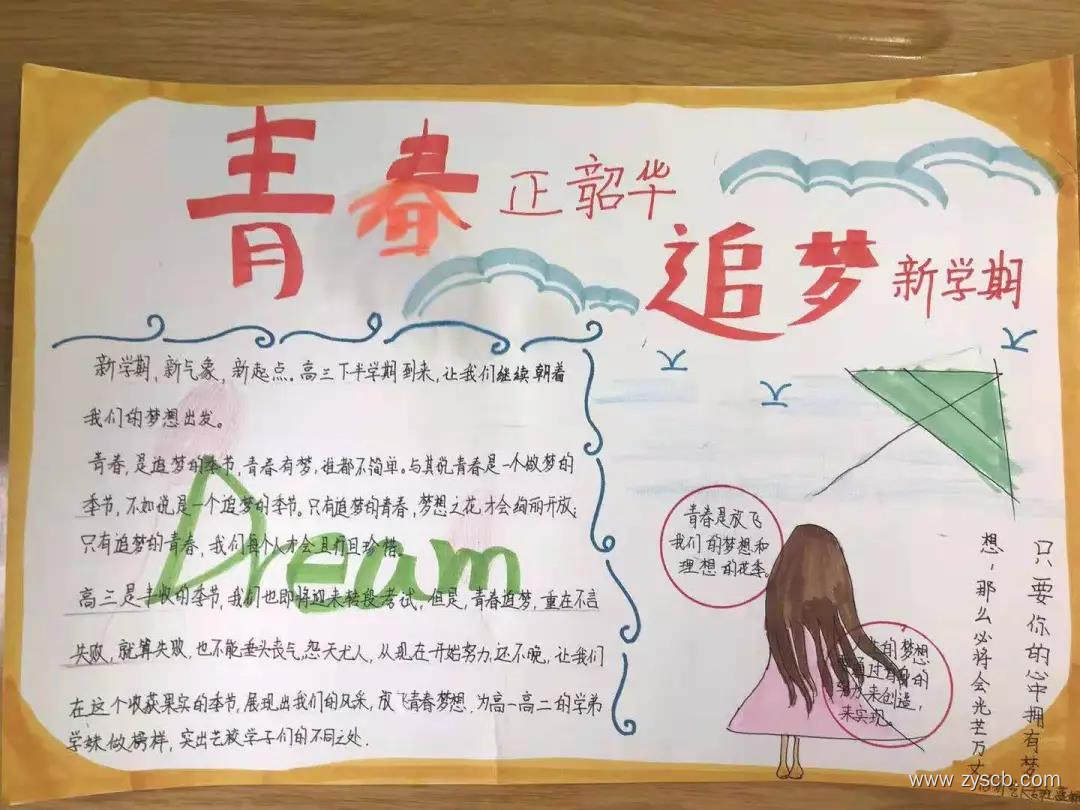 青春正韶华
追梦新学期
新学期，新气象，新起点。高三下半学期到来，让我们继续朝着
我们的梦想出发。
青春，是追梦的季节，青春有梦，谁都不简单。与其说青春是一个做梦的
季节，不如说是一个追梦的季节。只有追梦的青春，梦想之花才会绚丽开放；
只有追梦的青春，我们每个人才会且行且珍惜。
高三是丰收的季节，我们也即将迎来转段考试，但是，青春追梦，重在不言
失败，就算失败，也不能垂头丧气，怨天尤人，从现在开始努力，还不晚，让我们
在这个收获果实的季节，展现出我们的风采，放飞青春梦想，为高一高二的学弟
学妹做榜样，突出艺校学子们的不同之处.
Dream
青春是放飞
我们的梦想和
理想的花季。
的梦想
通过自身的
努力来创造，
来实现。
只要你的心中拥有梦
想，那么必将会光芒万丈
www.zyscb.com